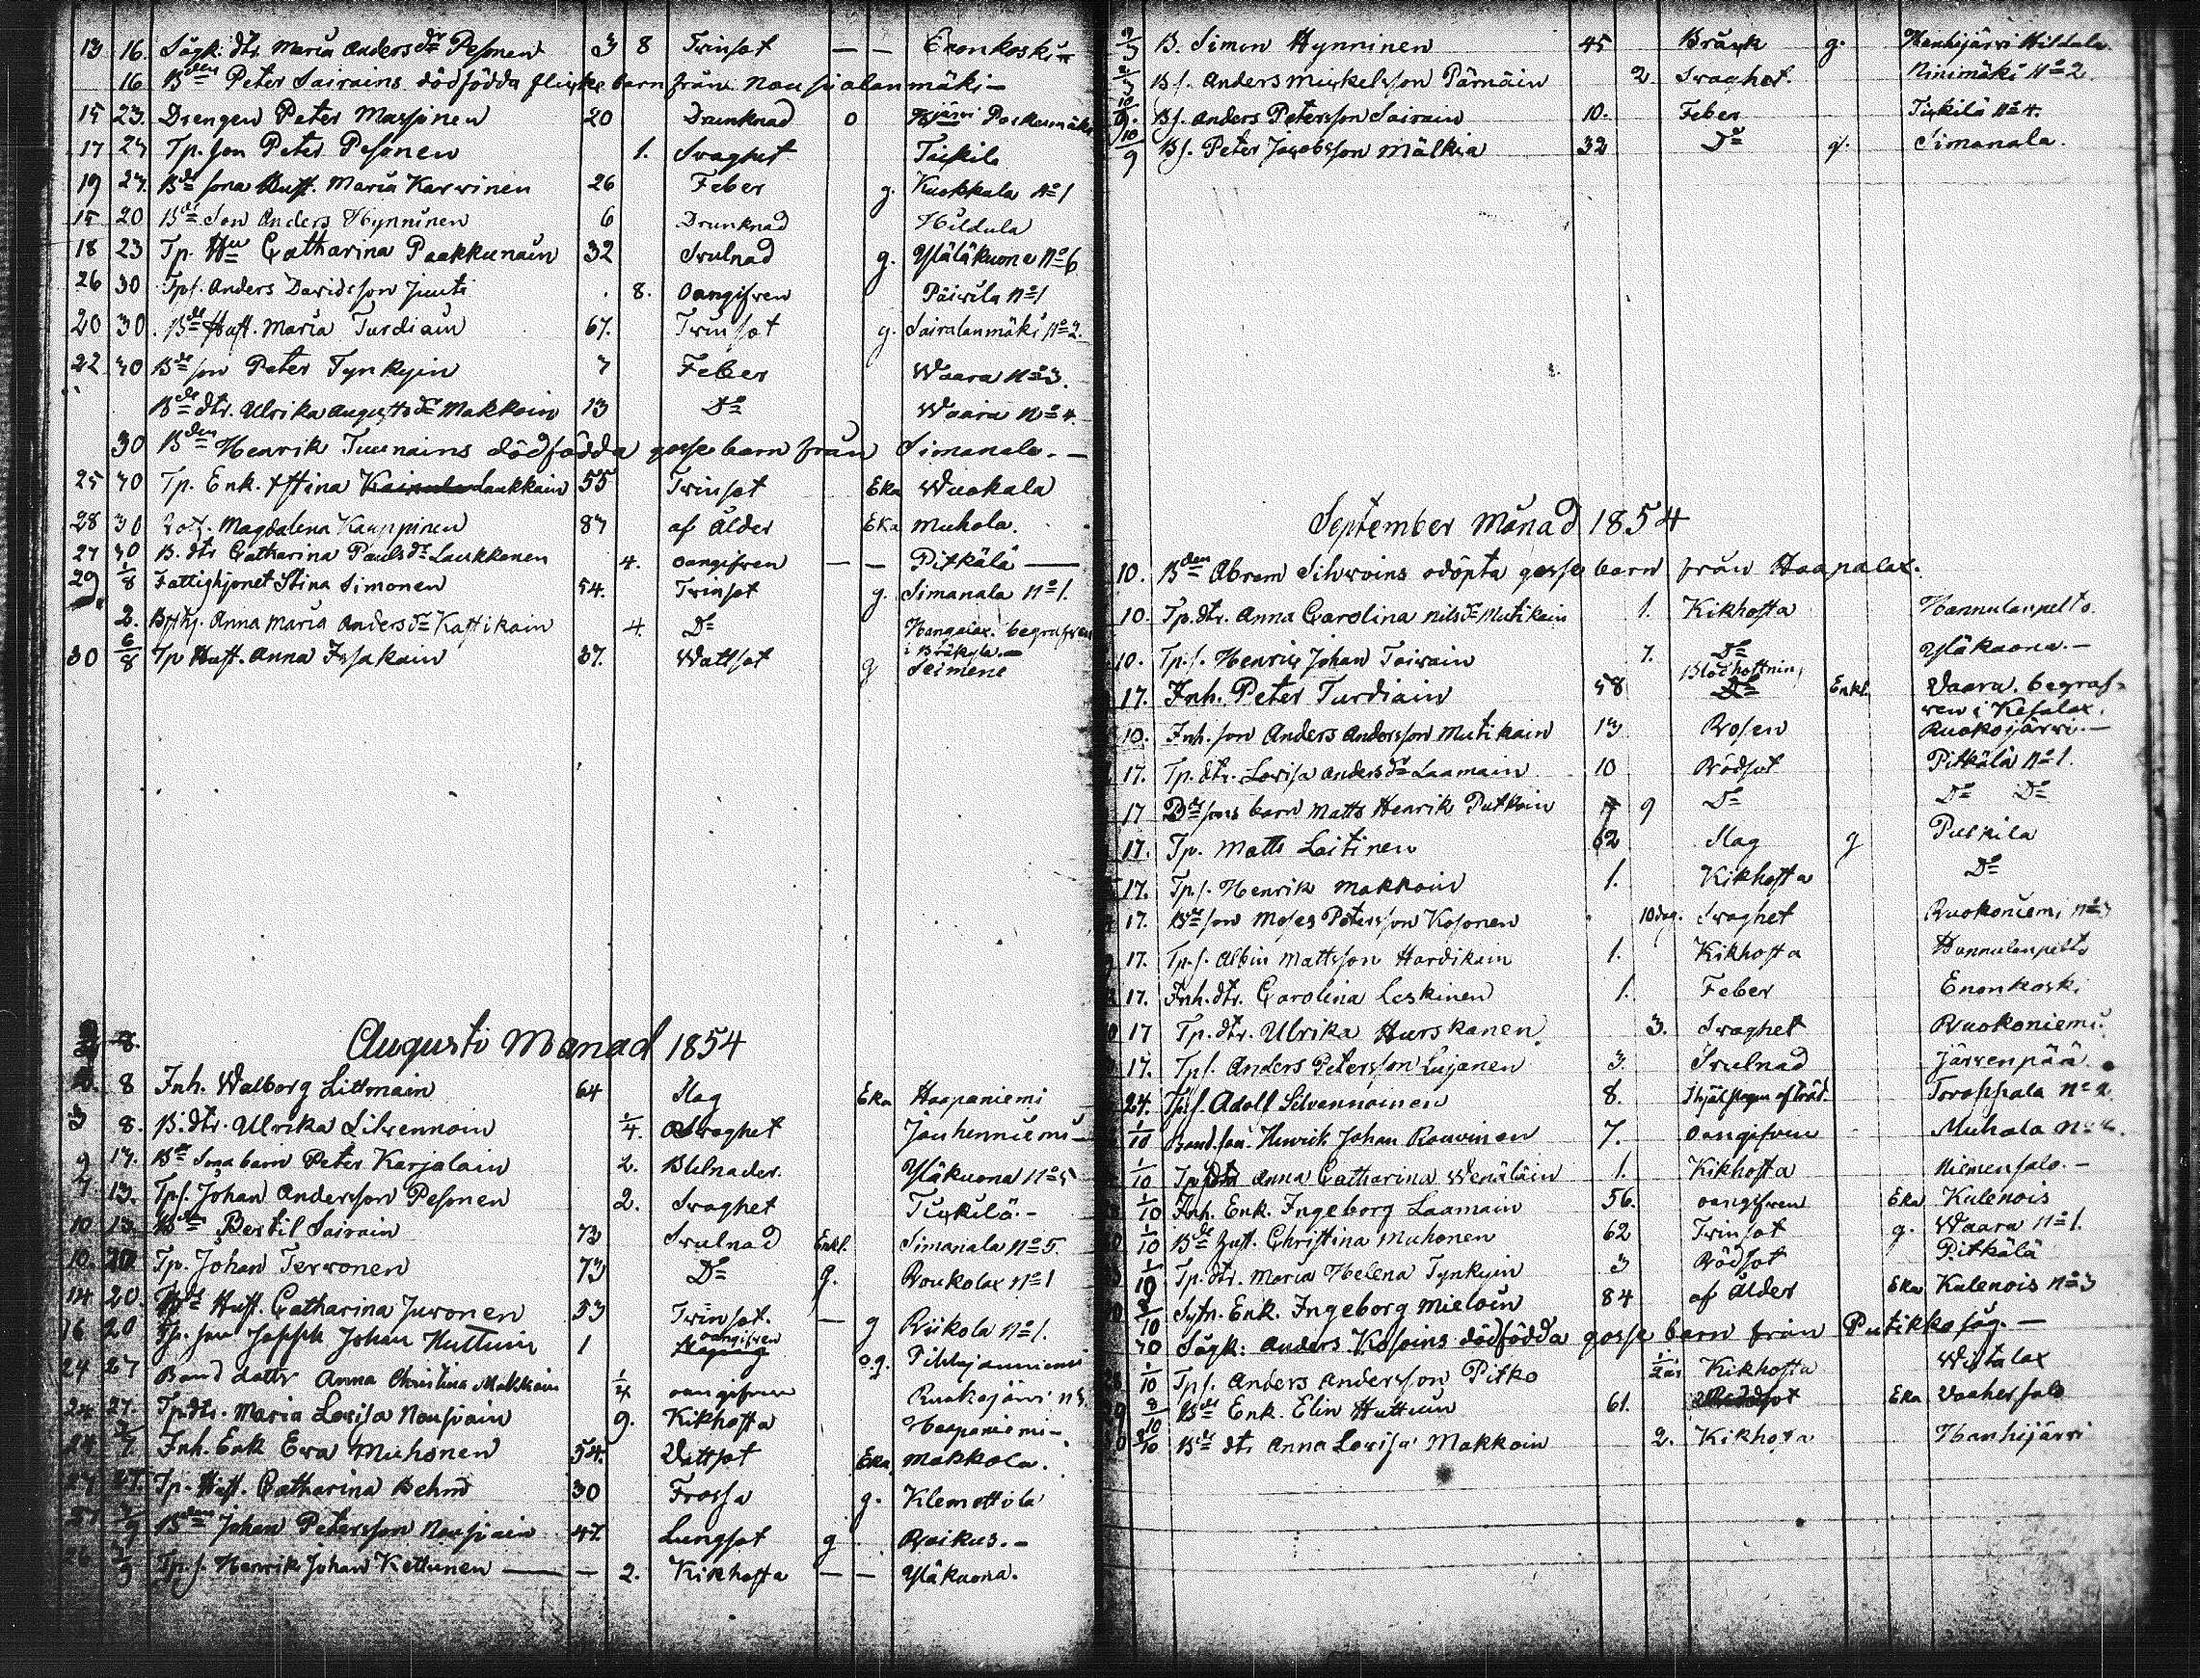 13 16. Sågk. dtr. Maria Andersdr Pesonen 3 8 Twinsot — — Enonkoski
16 Bden Peter Sairains dödfödda flicke barn från Nousialanmäki —
15 23. Drengen Peter Massinen 20 Drunknad o
17 27 Tp. son Peter Pesonen 1. Swaghet
19 27. Bde sona Hust. Maria Karvinen 26 Feber g. Kuokkala No 1
15 20 Bde Son Anders Hynninen 6 Drunknad Hildula
18 23 Tp. Hu Catharina Paakkunain 32 Swulnad g. Yläkuona No 6
26 30 Tps. Anders Davidsson Juuti 8. Oangifven Päivilä No 1
20 30. Bde Hust. Maria Turdiain 67. Twinsot g. Sairalanmäki No 2.
22 30 Bde son Peter Tynkyin 7 Feber Waara No 3.
Bde dtr. Ulrika Augustsdr Makkoin 13 Do Waara No 4.
30 Bden Henrik Tuunains dödfödda gosse barn från Simanala. —
25 30 Tp. Enk. Stina Laukkain 55 Twinsot Eka Wuokala
28 30 Magdalena Kauppinen 87 af Ålder Eka Muhola.
27 30 B. dtr Catharina Paulsdr Laukkanen 4. oangifven — — Pitkälä —
29 1/8 Fattighjonet Stina Simonen 54. Twinsot g. Simanala No 1.
2. Anna Maria Andersdr Kattikain 4. Do Hangalax. begrafven
30 6/8 Tp Hust. Anna Issakain 37. Wattsot g
Augusti Månad 1854
8 Inh. Walborg Litmain 64 Slag Eka Haapaniemi
3 8. B. dtr. Ulrika Silvennoin 1/4. Swaghet Jouhenniemi —
9 13. Bde Sona barn Peter Karjalain 2. Bulnader. Yläkuona No 5
7 13. Tps. Johan Andersson Pesonen 2. Swaghet
10 13. Bden Bertil Sairain 73 Swulnad Enkl. Simanala No 5.
10. 20. Tp. Johan Terwonen 73 Do g. Roukolax No 1
14 20. Bde Hust. Catharina Juvonen 53 Twinsot. — g Riikola No 1.
16 20 Tp. son Joseph Johan Huttuin 1 oangifven Pihlajaniemi
24 27 Bond dottr Anna Christina Makkoin 1/4 oangifven Ruokojärvi
24 27. Tp dtr. Maria Lovisa Nousiain 9. Kikhosta Haapaniemi —
24 Inh. Enk Ewa Muhonen 54. Vattsot Eka Makkola.
27 27. Tp. Hust. Catharina Behm 30 Frossa g. Klemettilä
27 3/9 Bden Johan Petersson Nousiain 47. Lungsot g Raikus. —
26 3/9 Tp. s. Henrik Johan Kettunen — — 2. Kikhosta — — Yläkuona.
B. Simon Hynninen 45 Bråck g. Kanhijärvi Hildula
Bs. Anders Mickelsson Pärnäin 2. Swaghet. Ninimäki No 2
10/9. Bs. Anders Petersson Sairain 10. Feber No 4.
10/9 Bs. Peter Jacobsson Mälkiä 32 Do g. Simanala.
September Månad 1854
10. Bden Abram Silwoins odöpta gosse barn från Haapalax.
10. Tp. dtr. Anna Carolina Nilsdr Mutikain 1. Kikhosta Hannulanpelto.
10. Tp. s. Henric Johan Toivain 7. Do Yläkuona. —
17. Inh. Peter Turdiain 58 Blodhostning Enkl. Vaara. begraf-
ven i Kesälax.
10. Inh. son Anders Andersson Mutikain 13 Rosen Ruokojärvi. —
17. Tp. dtr. Lovisa Andersdr Laamain 10 Rödsot Pitkälä No 1.
17 Des sons barn Matts Henrik Putkoin 9 Do Do Do
17. Tp. Matts Loitinen 62 Slag g Pulkila
17. Tp. s. Henrik Makkoin 1. Kikhosta Do
17. Bde son Moses Petersson Kosonen 10 dag. Swaghet Ruokoniemi No 3
17. Tp. s. Albin Mattsson Hardikain 1. Kikhosta Hannulanpelto
17. Inh. dtr. Carolina Leskinen 1. Feber Enonkoski
17 Tp. dtr. Ulrika Hurskanen. 3. Swaghet Ruokoniemi.
17. Tps. Anders Petersson Lujanen 3. Swulnad Järvenpää.
24. Tps. Adolf Silvennoinen 8. Ihjälslagen af träd. Toroppala No 2.
1/10 Bond. son Henrich Johan Rouvinen 7. oangifven Muhola
1/10 Tp dtr Anna Catharina Wenäläin 1. Kikhosta Niemensalo. —
1/10 Inh. Enk. Ingeborg Laamain 56. oangifven Eka Kulenois
1/10 Bde Hust. Christina Muhonen 62 Twinsot g. Waara No 1.
1/10 Tp. dtr. Maria Helena Tynkyin 3 Rödsot Pitkälä
8/10 Sytn. Enk. Ingeborg Mieloin 84 af Ålder Eka Kulenois No 3
30 Sågk. Anders Kosoins dödfödda gosse barn från Putikko såg. —
1/10 Tps. Anders Andersson Pitko 1/2 år Kikhosta
8/10 Bde Enk. Elin Huttuin 61. Eka Vaahersalo
8/10 Bde dtr Anna Lovisa Makkoin 2. Kikhosta Kanhijärvi